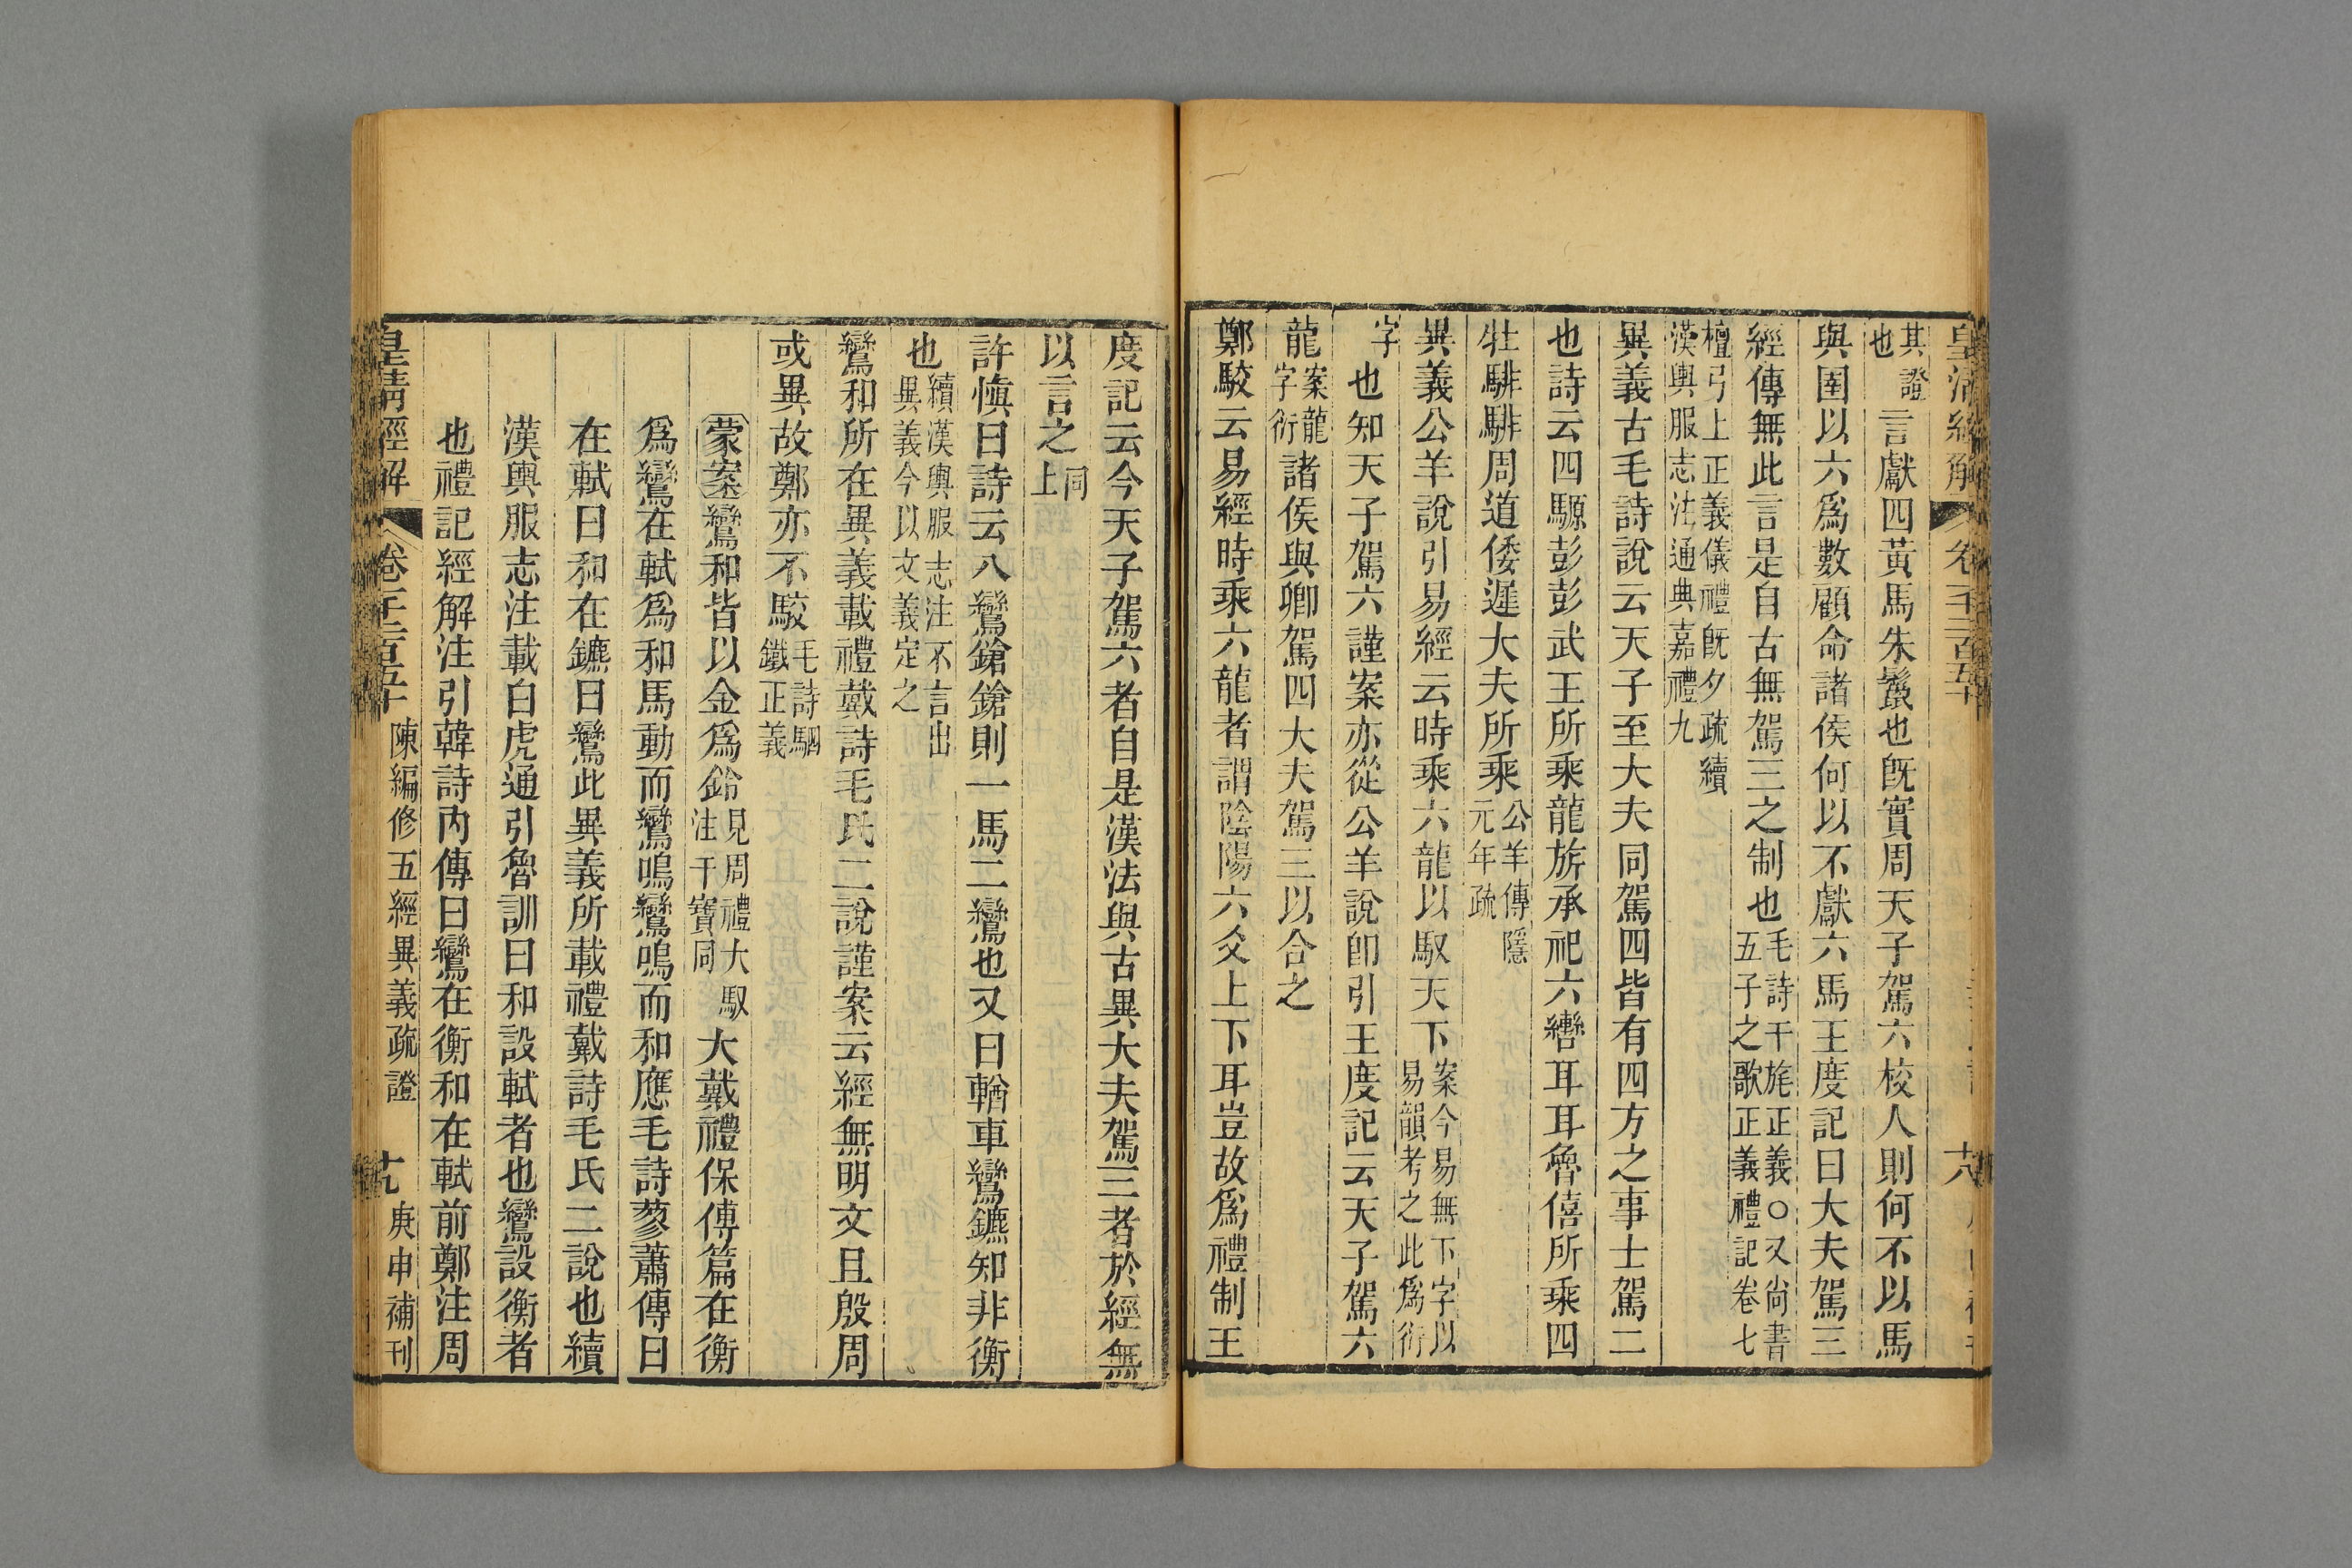 皇清經解 卷千二百五十 大
其證也言獻四黃馬朱鬣也旣實周天子駕六校人則何不以馬
與圉以六爲數顧命諸侯何以不獻六馬王度記曰大夫駕三
經傳無此言是自古無駕三之制也毛詩干旄正義〇又尚書五子之歌正義禮記卷七
檀弓上正義儀禮旣夕疏續漢輿服志注通典嘉禮九
異義古毛詩說云天子至大夫同駕四皆有四方之事士駕二
也詩云四騵彭彭武王所乘龍旂承祀六轡耳耳魯僖所乘四
牡騑騑周道倭遲大夫所乘公羊傳隱元年疏
異義公羊說引易經云時乘六龍以馭天下案今易無下字以易韻考之此爲衍
字也知天子駕六謹案亦從公羊說卽引王度記云天子駕六
龍案龍字衍諸侯與卿駕四大夫駕三以合之
鄭駮云易經時乘六龍者謂陰陽六爻上下耳豈故爲禮制王
度記云今天子駕六者自是漢法與古異大夫駕三者於經無
以言之同上
許愼曰詩云八鸞鎗鎗則一馬二鸞也又曰輶車鸞鑣知非衡
也續漢輿服志注不言出異義今以文義定之
鸞和所在異義載禮戴詩毛氏二說謹案云經無明文且殷周
或異故鄭亦不駮毛詩駟鐵正義
蒙案鸞和皆以金爲鈴見周禮大馭注干寶同大戴禮保傅篇在衡
爲鸞在軾爲和馬動而鸞鳴鸞鳴而和應毛詩蓼蕭傳曰
在軾曰和在鑣曰鸞此異義所載禮戴詩毛氏二說也續
漢輿服志注載白虎通引魯訓曰和設軾者也鸞設衡者
也禮記經解注引韓詩內傳曰鸞在衡和在軾前鄭注周
皇清經解 卷千二百五十 陳編修五經異義疏證 九 庚申補刊